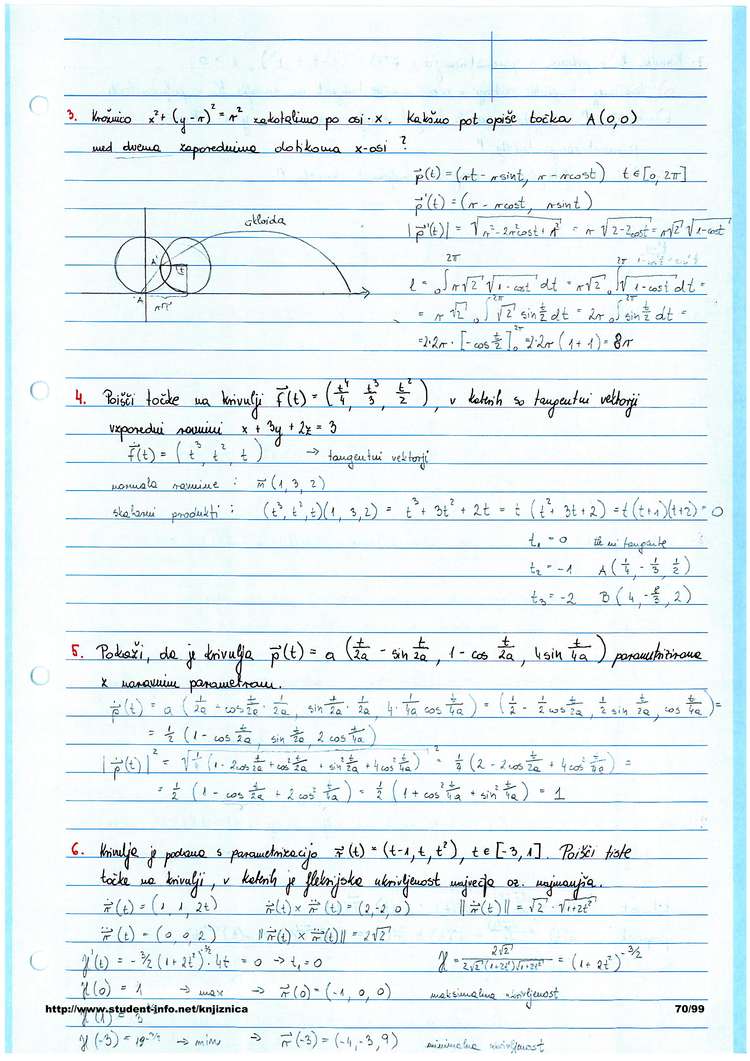 3. Krožnico x² + (y - r)² = r² zakotalimo po osi x. Kakšno pot opiše točka A(0,0)
med dvema zaporednima dotikoma x-osi?
p⃗(t) = (rt - r sin t, r - r cos t) t ∈ [0, 2π]
p⃗'(t) = (r - r cos t, r sin t)
|p⃗'(t)| = √(r² - 2r² cos t + r²) = r √(2 - 2cos t) = r√2 √(1 - cos t)
cikloida
A'
t
A
l = ₀∫^2π r√2 √(1 - cos t) dt = r√2 ₀∫^2π √(1 - cos t) dt =
= r √2 ₀∫^2π √2 sin t/2 dt = 2r ₀∫^2π sin t/2 dt =
= 2·2r · [-cos t/2]₀^2π = 2·2r (1 + 1) = 8r
4. Poišči točke na krivulji f⃗(t) = (t⁴/4, t³/3, t²/2), v katerih so tangentni vektorji
vzporedni ravnini x + 3y + 2z = 3
ḟ(t) = (t³, t², t) → tangentni vektorji
normala ravnine : n⃗ (1, 3, 2)
skalarni produkti : (t³, t², t)(1, 3, 2) = t³ + 3t² + 2t = t (t² + 3t + 2) = t(t+1)(t+2) = 0
t₁ = 0 tu ni tangente
t₂ = -1 A(1/4, -1/3, 1/2)
t₃ = -2 B(4, -8/3, 2)
5. Pokaži, da je krivulja p⃗(t) = a (t/2a - sin t/2a, 1 - cos t/2a, 4 sin t/4a) parametrizirana
z naravnim parametrom.
ṗ(t) = a (1/2a - cos t/2a · 1/2a, sin t/2a · 1/2a, 4 · 1/4a cos t/4a) = (1/2 - 1/2 cos t/2a, 1/2 sin t/2a, cos t/4a) =
= 1/2 (1 - cos t/2a, sin t/2a, 2 cos t/4a)
|ṗ(t)|² = √(1/4 (1 - 2cos t/2a + cos² t/2a + sin² t/2a + 4cos² t/4a))² = 1/4 (2 - 2cos t/2a + 4cos² t/4a) =
= 1/2 (1 - cos t/2a + 2 cos² t/4a) = 1/2 (1 + cos² t/4a + sin² t/4a) = 1
6. Krivulja je podana s parametrizacijo r⃗(t) = (t-1, t, t²), t ∈ [-3, 1]. Poišči tiste
točke na krivulji, v katerih je fleksijska ukrivljenost največja oz. najmanjša.
ṙ(t) = (1, 1, 2t) ṙ(t) × r̈(t) = (2, -2, 0) ||ṙ(t)|| = √2 · √(1+2t²)
r̈(t) = (0, 0, 2) ||ṙ(t) × r̈(t)|| = 2√2
ϰ'(t) = -3/2 (1 + 2t²) · 4t = 0 → t₁ = 0 ϰ = 2√2 / 2√2 (1+2t²)√(1+2t²) = (1 + 2t²)^-3/2
ϰ(0) = 1 → max → r⃗(0) = (-1, 0, 0) maksimalna ukrivljenost
http://www.student-info.net/knjiznica 70/99
ϰ(-3) = 19^-3/2 → min → r⃗(-3) = (-4, -3, 9) minimalna ukrivljenost